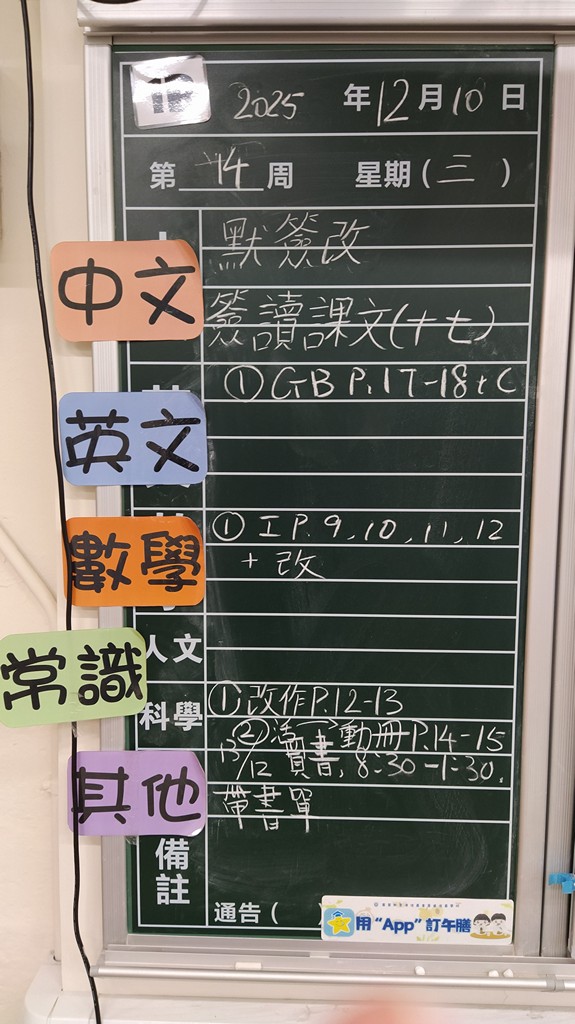 2025 年 12 月 10 日
第 14 周 星期 ( 三 )
中文
默簽改
簽讀課文(十七)
英文
① GB P.17-18 + C
數學
① I P. 9, 10, 11, 12
+ 改
人文
常識
科學
① 改作 P.12-13
② 活→動冊 P.14-15
其他
13/12 買書, 8:30-1:30.
帶書單
備註
通告 (
用 “App” 訂午膳